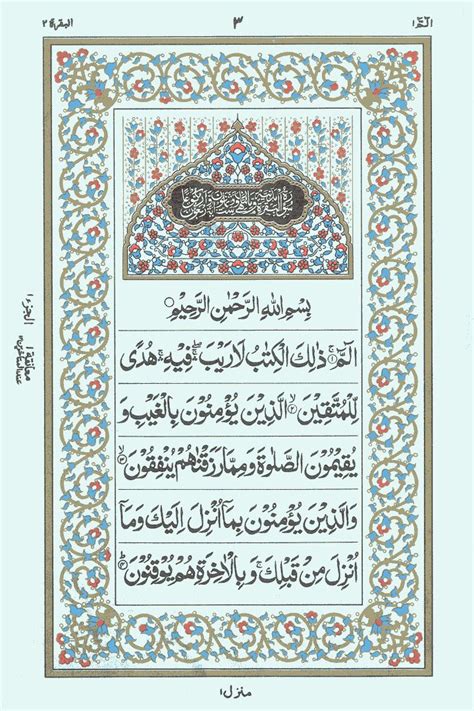 الٓمّٓ ١
٣
البقرة ٢
بِسْمِ اللهِ الرَّحْمٰنِ الرَّحِيْمِ ○
الٓمّٓ ۚ﴿۱﴾ ذٰلِكَ الْكِتٰبُ لَا رَيْبَ ۛۖ فِيْهِ ۛۚ هُدًى
لِّلْمُتَّقِيْنَ ۙ﴿۲﴾ الَّذِيْنَ يُؤْمِنُوْنَ بِالْغَيْبِ وَ
يُقِيْمُوْنَ الصَّلٰوةَ وَمِمَّا رَزَقْنٰهُمْ يُنْفِقُوْنَ ۙ﴿۳﴾
وَالَّذِيْنَ يُؤْمِنُوْنَ بِمَآ اُنْزِلَ اِلَيْكَ وَمَآ
اُنْزِلَ مِنْ قَبْلِكَ ۚ وَبِالْاٰخِرَةِ هُمْ يُوْقِنُوْنَ ؕ﴿۴﴾
الجزء ١
معانقة ١
منزل ١